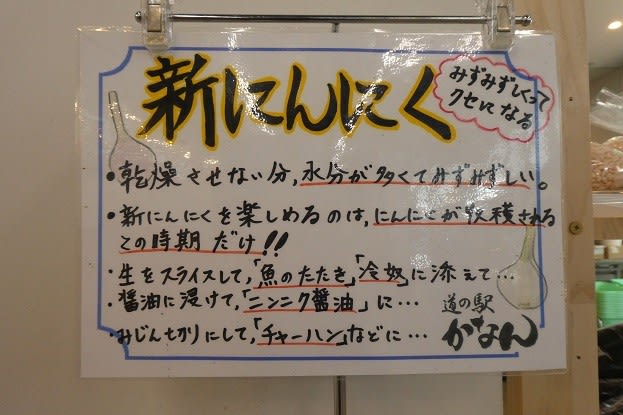 新にんにく
みずみずしくって
クセになる
・乾燥させない分、水分が多くてみずみずしい。
・新にんにくを楽しめるのは、にんにくが収穫される
この時期だけ!!
・生をスライスして、「魚のたたき」「冷奴」に添えて…
・醤油に浸けて、「ニンニク醤油」に…
・みじん切りにして、「チャーハン」などに…
道の駅
かなん